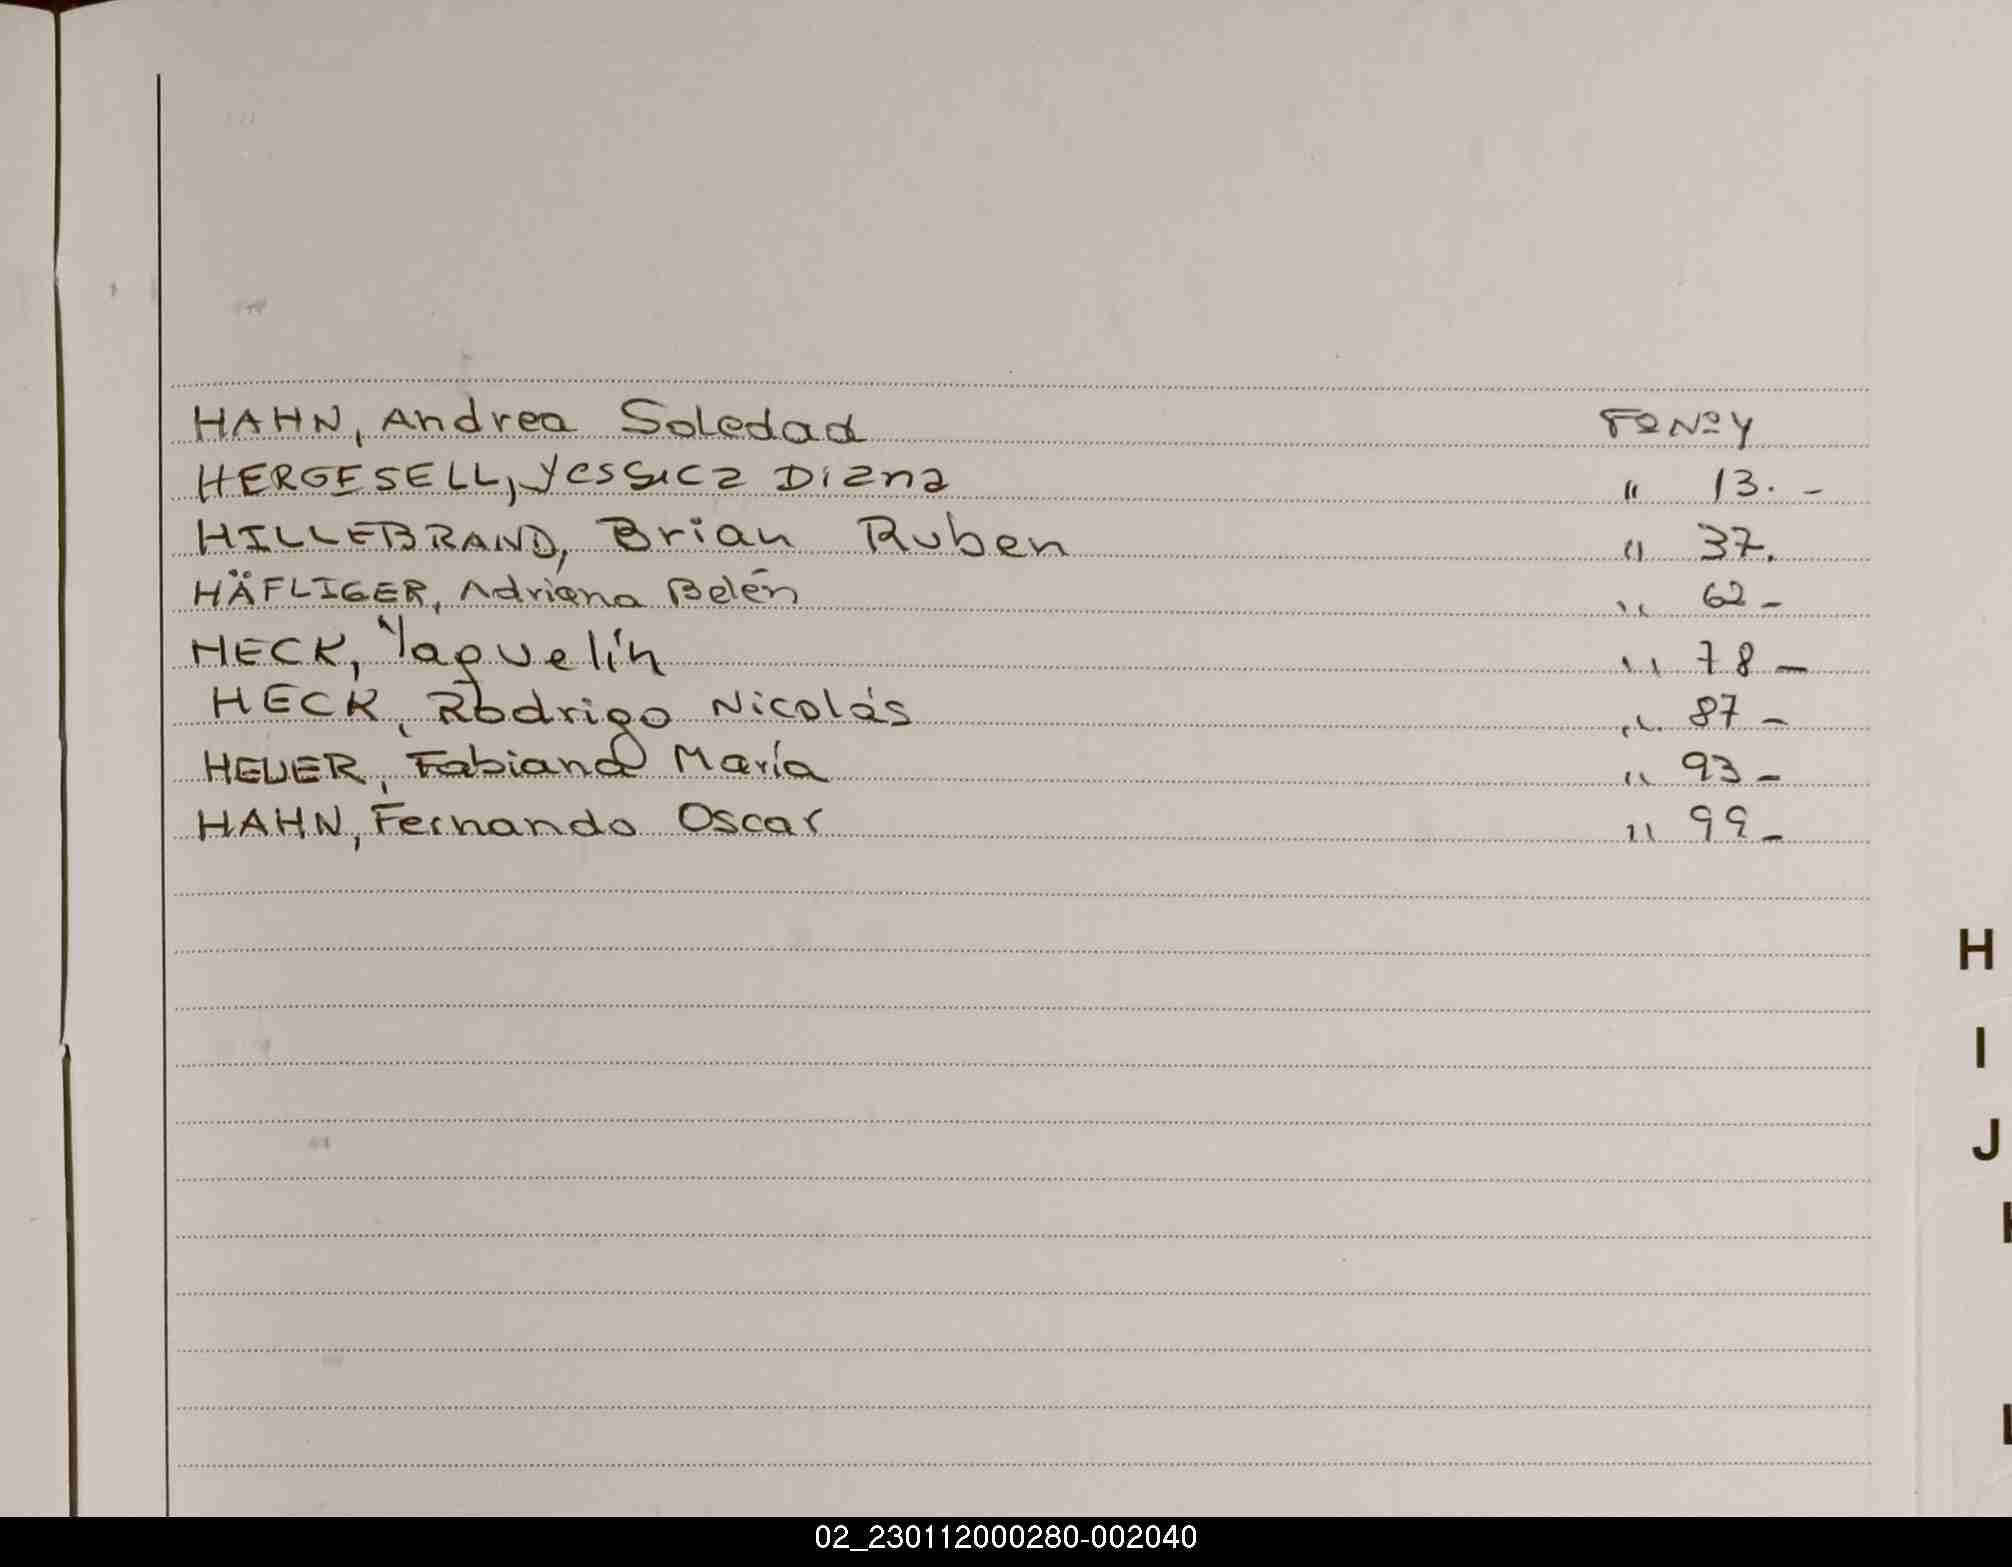 HAHN, Andrea Soledad Fº Nº 4
HERGESELL, Yessica Diana " 13. -
HILLEBRAND, Brian Ruben " 37.
HÄFLIGER, Adriana Belén " 62 -
HECK, Yaquelín " 78 -
HECK, Rodrigo Nicolás " 87 -
HEUER, Fabiana María " 93 -
HAHN, Fernando Oscar " 99 -
H
I
J
L
02_230112000280-002040